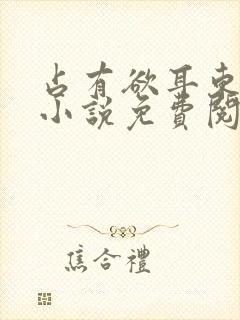 占有欲耳東
小說免費閱
焦合禮